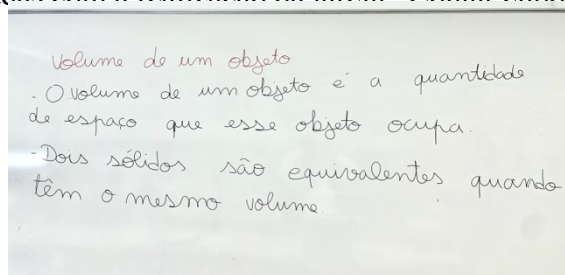 Volume de um objeto
- O volume de um objeto é a quantidade
de espaço que esse objeto ocupa.
- Dois sólidos são equivalentes quando
têm o mesmo volume.